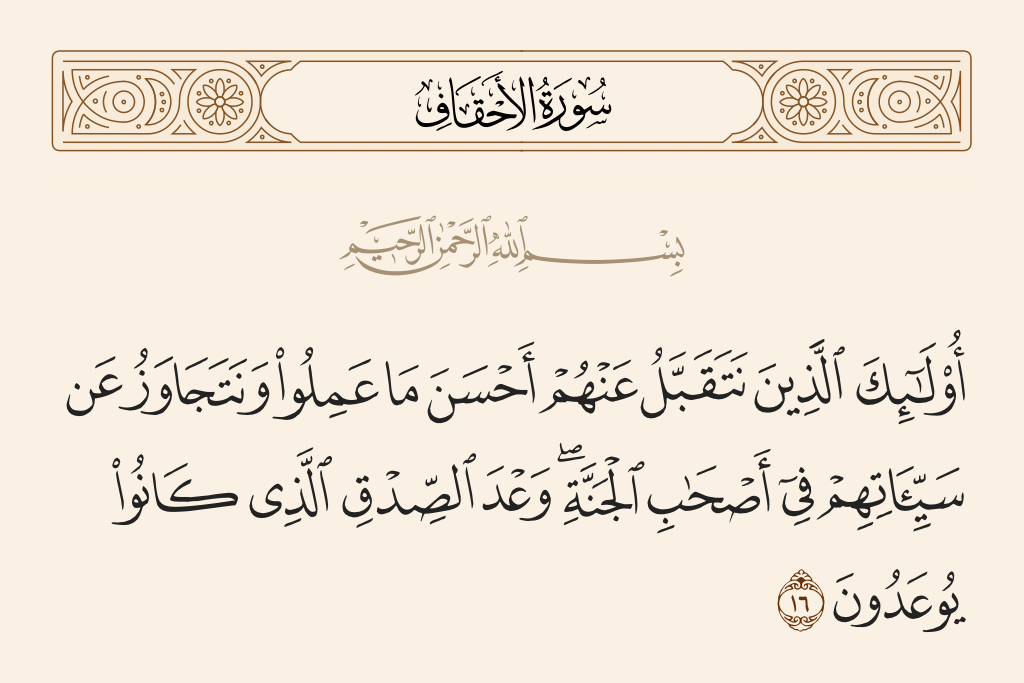 سُورَةُ الأَحْقَافِ
بِسْمِ ٱللَّهِ ٱلرَّحْمَٰنِ ٱلرَّحِيمِ
أُو۟لَـٰٓئِكَ ٱلَّذِينَ نَتَقَبَّلُ عَنْهُمْ أَحْسَنَ مَا عَمِلُوا۟ وَنَتَجَاوَزُ عَن
سَيِّـَٔاتِهِمْ فِىٓ أَصْحَـٰبِ ٱلْجَنَّةِ ۖ وَعْدَ ٱلصِّدْقِ ٱلَّذِى كَانُوا۟
يُوعَدُونَ ١٦